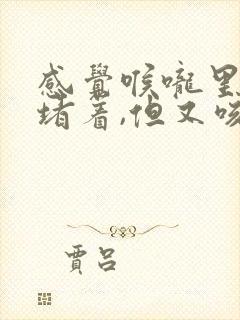 感覺喉嚨里
堵着,但又咳
賈呂